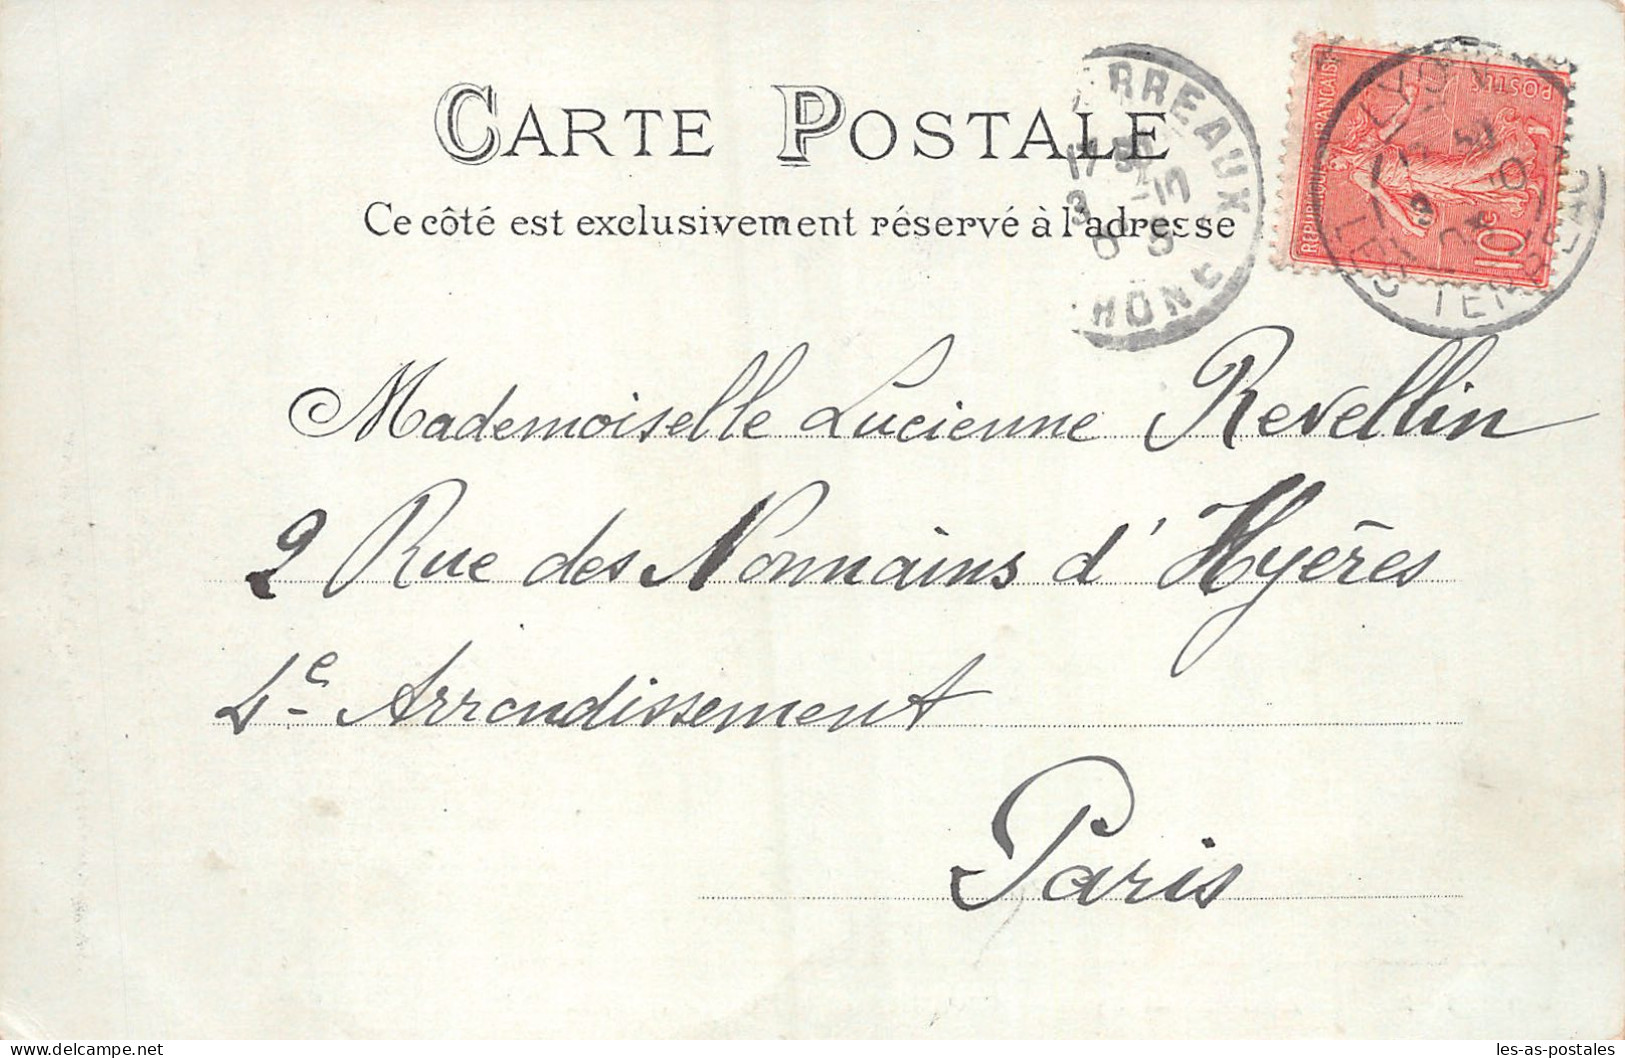 CARTE POSTALE
Ce côté est exclusivement réservé à l'adresse
RREAUX
17
3
HÔNE
RÉPUBLIQUE FRANÇAISE
POSTES
10c
LYON
LES TERREAUX
Mademoiselle Lucienne Revellin
2 Rue des Nonnains d'Hyères
4e Arrondissement
Paris
les-as-postales